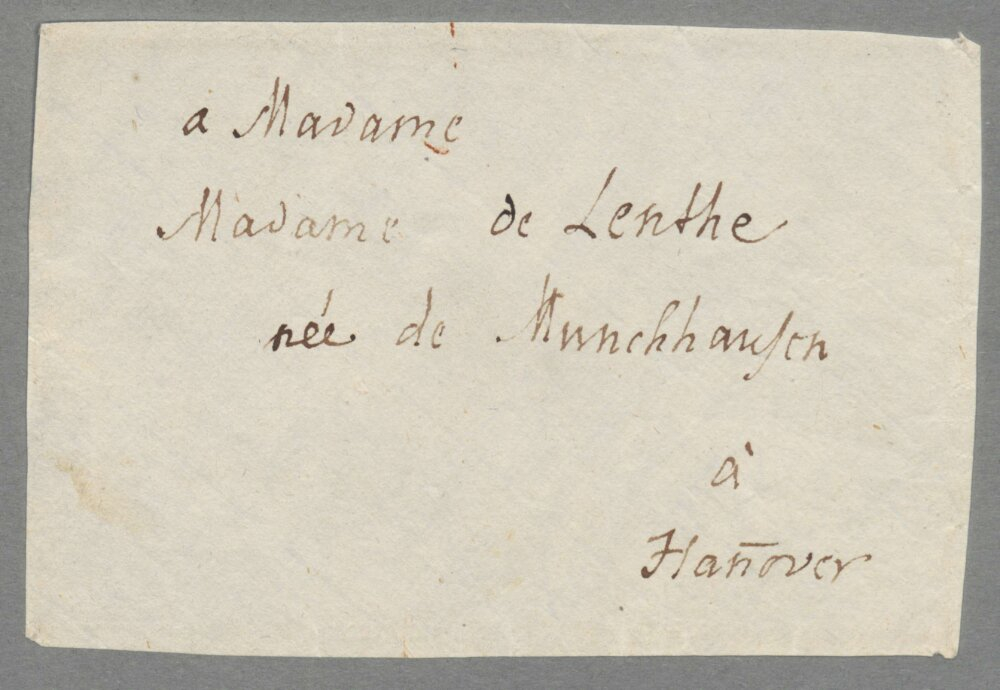 a Madame
Madame de Lenthe
née de Munchhausen
à
Han̄over